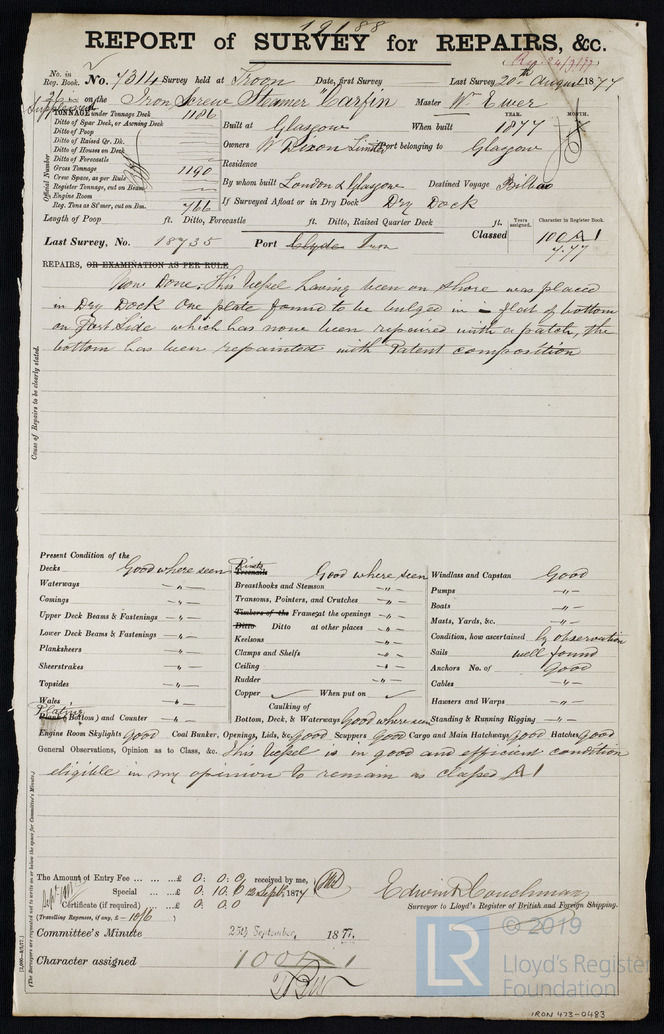 19188
REPORT of SURVEY for REPAIRS, &c.
No. in Reg. Book. No. 7314 Survey held at Troon Date, first Survey Last Survey 20th August 1877
on the Iron Screw Steamer "Carfin" Master Wm Ewer
TONNAGE under Tonnage Deck 1186
Ditto of Spar Deck, or Awning Deck
Ditto of Poop
Ditto of Raised Qr. Dk.
Ditto of Houses on Deck
Ditto of Forecastle
Gross Tonnage 1190
Crew Space, as per Rule
Register Tonnage, cut on Beam
Engine Room
Reg. Tons as St'mer, cut on Bm. 766
Official Number
Built at Glasgow When built 1877
YEAR. MONTH. 7
Owners W Dixon Limited Port belonging to Glasgow
Residence
By whom built London & Glasgow Destined Voyage Bilbao
If Surveyed Afloat or in Dry Dock Dry Dock
Length of Poop ft. Ditto, Forecastle ft. Ditto, Raised Quarter Deck ft.
Last Survey, No. 18735 Port Clyde
Classed
Years assigned.
Character in Register Book.
100 A 1
7.77
REPAIRS, OR EXAMINATION AS PER RULE
Now Done. This Vessel having been on shore was placed
in Dry Dock One plate found to be bulged in flat of bottom
on Port Side which has now been repaired with a patch, the
bottom has been repainted with Patent composition
Cause of Repairs to be clearly stated.
Present Condition of the
Decks Good where seen
Waterways -"-
Comings -"-
Upper Deck Beams & Fastenings -"-
Lower Deck Beams & Fastenings -"-
Planksheers -"-
Sheerstrakes -"-
Topsides -"-
Wales -"-
Plating
Plank (Bottom) and Counter -"-
Rivets
Treenails Good where seen
Breasthooks and Stemson -"-
Transoms, Pointers, and Crutches -"-
Timbers of the Frames at the openings -"-
Ditto Ditto at other places -"-
Keelsons -"-
Clamps and Shelfs -"-
Ceiling -"-
Rudder -"-
Copper When put on
Caulking of
Bottom, Deck, & Waterways Good where seen
Windlass and Capstan Good
Pumps -"-
Boats -"-
Masts, Yards, &c. -"-
Condition, how ascertained by observation
Sails well found
Anchors No. of Good
Cables -"-
Hawsers and Warps -"-
Standing & Running Rigging -"-
Engine Room Skylights Good Coal Bunker, Openings, Lids, &c. Good Scuppers Good Cargo and Main Hatchways Good Hatches Good
General Observations, Opinion as to Class, &c. This Vessel is in good and efficient condition
eligible in my opinion to remain as classed A 1
(The Surveyors are requested not to write on or below the space for Committee's Minute.)
The Amount of Entry Fee ... ... £ 0. 0. 0 received by me,
Special ... £ 0. 10. 0 12 Sept 1877
Certificate (if required) ... £ 0. 0. 0
(Travelling Expenses, if any, £ 10/6 )
Edwin Couchman
Surveyor to Lloyd's Register of British and Foreign Shipping.
Committee's Minute 25th September, 1877.
Character assigned 100 A 1
© 2019
LR
Lloyd's Register
Foundation
IRON 473-0483